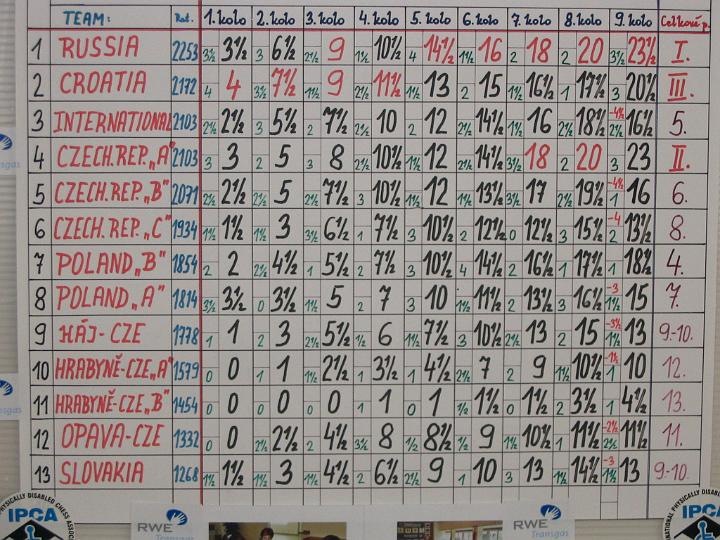 TEAM: Rat. 1. kolo 2. kolo 3. kolo 4. kolo 5. kolo 6. kolo 7. kolo 8. kolo 9. kolo Celkové p.
1 RUSSIA 2253 3½ 3½ 3 6½ 2½ 9 1½ 10½ 4 14½ 1½ 16 2 18 2 20 3½ 23½ I.
2 CROATIA 2172 4 4 3½ 7½ 1½ 9 2½ 11½ 1½ 13 2 15 1½ 16½ 1 17½ 3 20½ III.
3 INTERNATIONAL 2103 2½ 2½ 3 5½ 2 7½ 2½ 10 2 12 2½ 14½ 1½ 16 2½ 18½ -4½ 2½ 16½ 5.
4 CZECH.REP.„A" 2103 3 3 2 5 3 8 2½ 10½ 1½ 12 2½ 14½ 3½ 18 2 20 3 23 II.
5 CZECH.REP.„B" 2071 2½ 2½ 2½ 5 2½ 7½ 3 10½ 1½ 12 1½ 13½ 3½ 17 2½ 19½ -4½ 1 16 6.
6 CZECH.REP.„C" 1934 1½ 1½ 1½ 3 3½ 6½ 1 7½ 3 10½ 2 12½ 0 12½ 3 15½ -4 2 13½ 8.
7 POLAND„B" 1854 2 2 2½ 4½ 1 5½ 2 7½ 3 10½ 4 14½ 2 16½ 1 17½ 1 18½ 4.
8 POLAND„A" 1814 3½ 3½ 0 3½ 1½ 5 2 7 3 10 1½ 11½ 2 13½ 3 16½ -3 1½ 15 7.
9 HÁJ-CZE 1778 1 1 2 3 2½ 5½ ½ 6 1½ 7½ 3 10½ 2½ 13 2 15 -3½ 1½ 13 9.-10.
10 HRABYNĚ-CZE„A" 1579 0 0 1 1 1½ 2½ 1 3½ 1 4½ 2½ 7 2 9 1½ 10½ 1 10 12.
11 HRABYNĚ-CZE„B" 1454 0 0 0 0 0 0 1 1 0 1 ½ 1½ 0 1½ 2 3½ 1 4½ 13.
12 OPAVA-CZE 1332 0 0 2½ 2½ 2 4½ 3½ 8 ½ 8½ ½ 9 1½ 10½ 1 11½ -2½ 2½ 11½ 11.
13 SLOVAKIA 1268 1½ 1½ 1½ 3 1½ 4½ 2 6½ 2½ 9 1 10 3 13 1½ 14½ -3 1½ 13 9.-10.
PHYSICALLY DISABLED CHESS
IPCA
RWE
Transgas
RWE
Transgas
IPCA